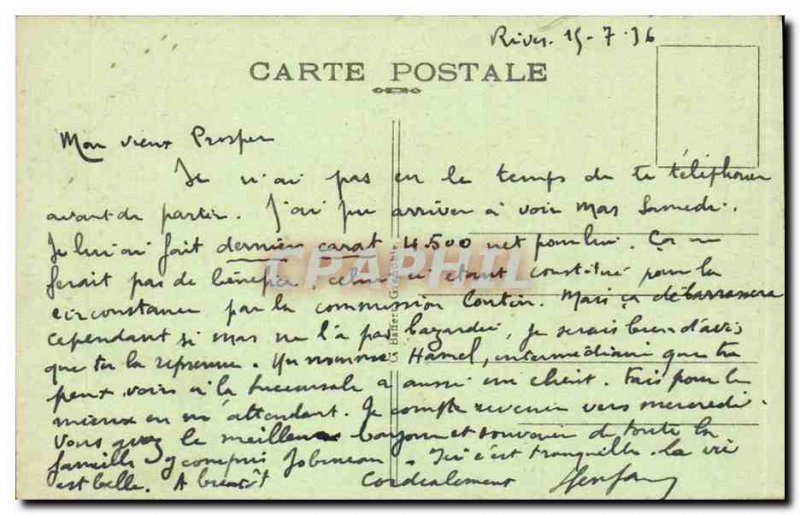 Rives. 15-7-36
CARTE POSTALE
Mon vieux Prosper
Je n'ai pas eu le temps de te téléphoner
avant de partir. J'ai pu arriver à voir Mas Samedi.
Je lui ai fait dernier carat 4.500 net pour lui. Ça ne
ferait pas de bénéfice, celui ci étant constitué pour la
circonstance par la commission Contin. Mais ça débarrassera
cependant si mas ne l'a pas bazardée, je serais bien d'avis
que tu la reprenne. Un nommé Hamel, intermédiaire que tu
peux voir à la succursale a aussi un client. Fais pour le
mieux en m'attendant. Je compte revenir vers mercredi.
Vous avez le meilleur bonjour et souvenir de toute la
famille y compris Jobineau. Ici c'est tranquille. la vie
est belle. A bientôt Cordialement
CPAPHIL